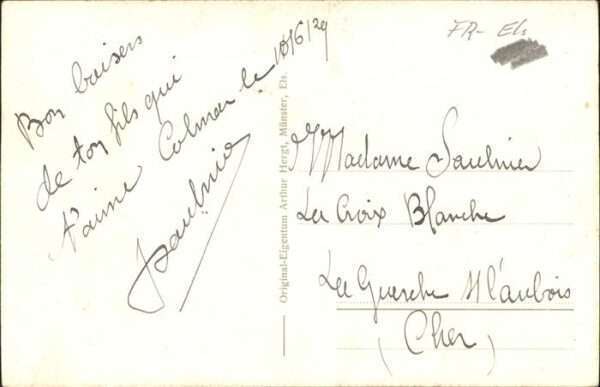 Bon baisers
de ton fils qui
t'aime Colmar le 18/6/29
Saulnier
Original-Eigentum Arthur Hergt, Münster, Els.
FR- Els
Madame Saulnier
La Croix Blanche
La Guerche s/l'aubois
(Cher)